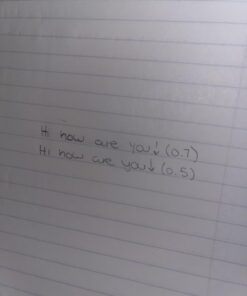 Hi how are you↓ (0.7)
Hi how are you↓ (0.5)